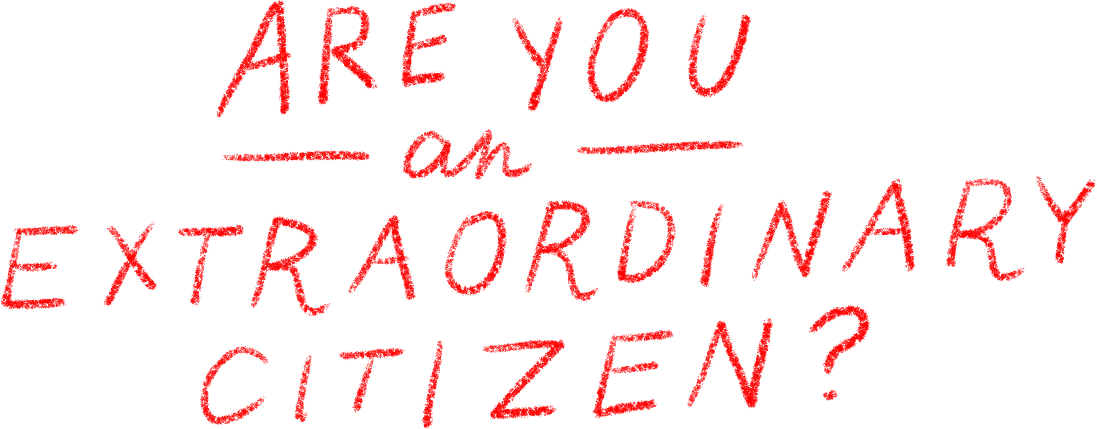 ARE YOU
an
EXTRAORDINARY
CITIZEN?